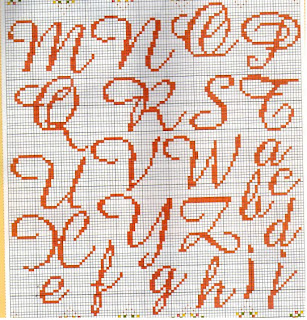 M N O P
Q R S T
U V W a
b c
X Y Z d
e f g h i j